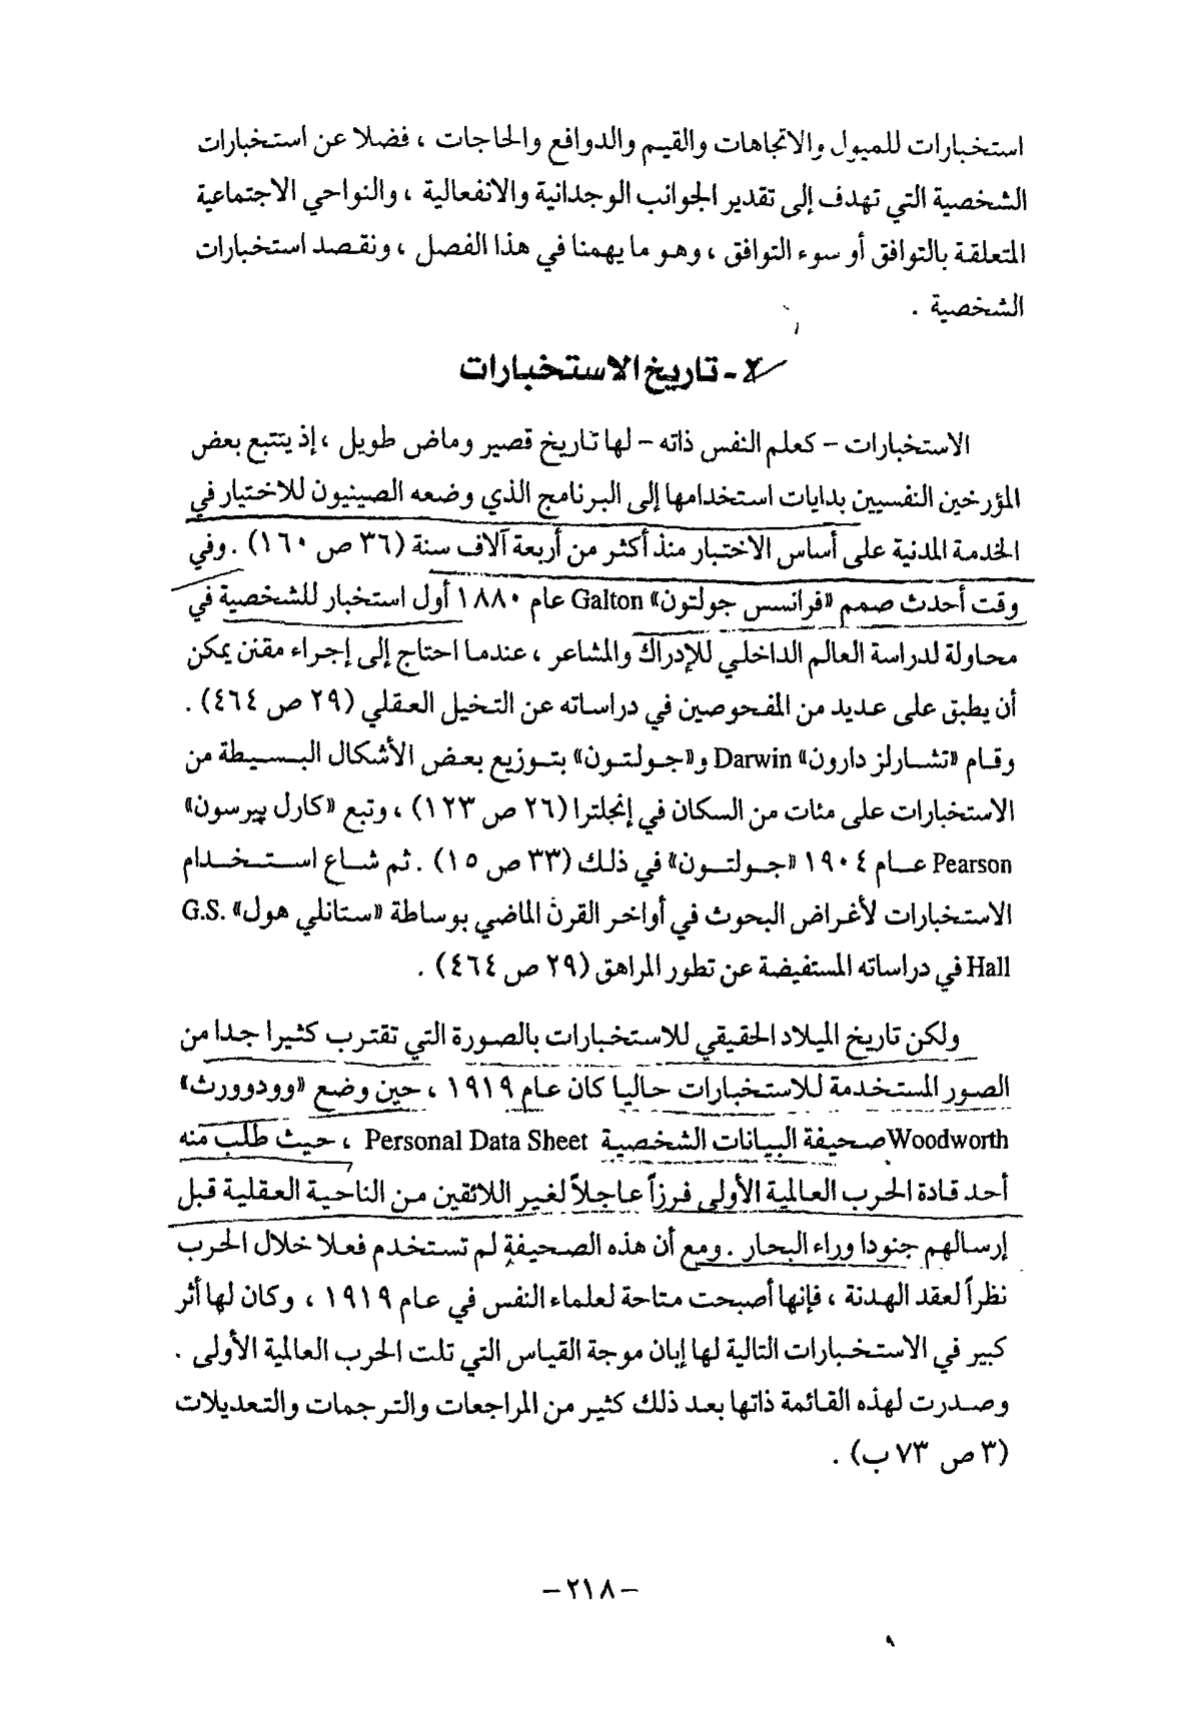 استخبارات للميول والاتجاهات والقيم والدوافع والحاجات ، فضلا عن استخبارات
الشخصية التي تهدف إلى تقدير الجوانب الوجدانية والانفعالية ، والنواحي الاجتماعية
المتعلقة بالتوافق أو سوء التوافق ، وهو ما يهمنا في هذا الفصل ، ونقصد استخبارات
الشخصية .
٢ - تاريخ الاستخبارات
الاستخبارات – كعلم النفس ذاته – لها تاريخ قصير وماض طويل ، إذ يتتبع بعض
المؤرخين النفسيين بدايات استخدامها إلى البرنامج الذي وضعه الصينيون للاختيار في
الخدمة المدنية على أساس الاختبار منذ أكثر من أربعة آلاف سنة (٣٦ ص ١٦٠) . وفي
وقت أحدث صمم «فرانسس جولتون» Galton عام ١٨٨٠ أول استخبار للشخصية في
محاولة لدراسة العالم الداخلي للإدراك والمشاعر ، عندما احتاج إلى إجراء مقنن يمكن
أن يطبق على عديد من المفحوصين في دراساته عن التخيل العقلي (٢٩ ص ٤٦٤) .
وقام «تشارلز دارون» Darwin و«جولتون» بتوزيع بعض الأشكال البسيطة من
الاستخبارات على مئات من السكان في إنجلترا (٢٦ ص ١٢٣) ، وتبع «كارل پيرسون»
Pearson عام ١٩٠٤ «جولتون» في ذلك (٣٣ ص ١٥) . ثم شاع استخدام
الاستخبارات لأغراض البحوث في أواخر القرن الماضي بوساطة «ستانلي هول» G.S.
Hall في دراساته المستفيضة عن تطور المراهق (٢٩ ص ٤٦٤) .
ولكن تاريخ الميلاد الحقيقي للاستخبارات بالصورة التي تقترب كثيرا جدا من
الصور المستخدمة للاستخبارات حاليا كان عام ١٩١٩ ، حين وضع «وودوورث»
Woodworth صحيفة البيانات الشخصية Personal Data Sheet ، حيث طلب منه
أحد قادة الحرب العالمية الأولى فرزاً عاجلاً لغير اللائقين من الناحية العقلية قبل
إرسالهم جنودا وراء البحار . ومع أن هذه الصحيفة لم تستخدم فعلا خلال الحرب
نظراً لعقد الهدنة ، فإنها أصبحت متاحة لعلماء النفس في عام ١٩١٩ ، وكان لها أثر
كبير في الاستخبارات التالية لها إبان موجة القياس التي تلت الحرب العالمية الأولى .
وصدرت لهذه القائمة ذاتها بعد ذلك كثير من المراجعات والترجمات والتعديلات
(٣ ص ٧٣ ب) .
–٢١٨–